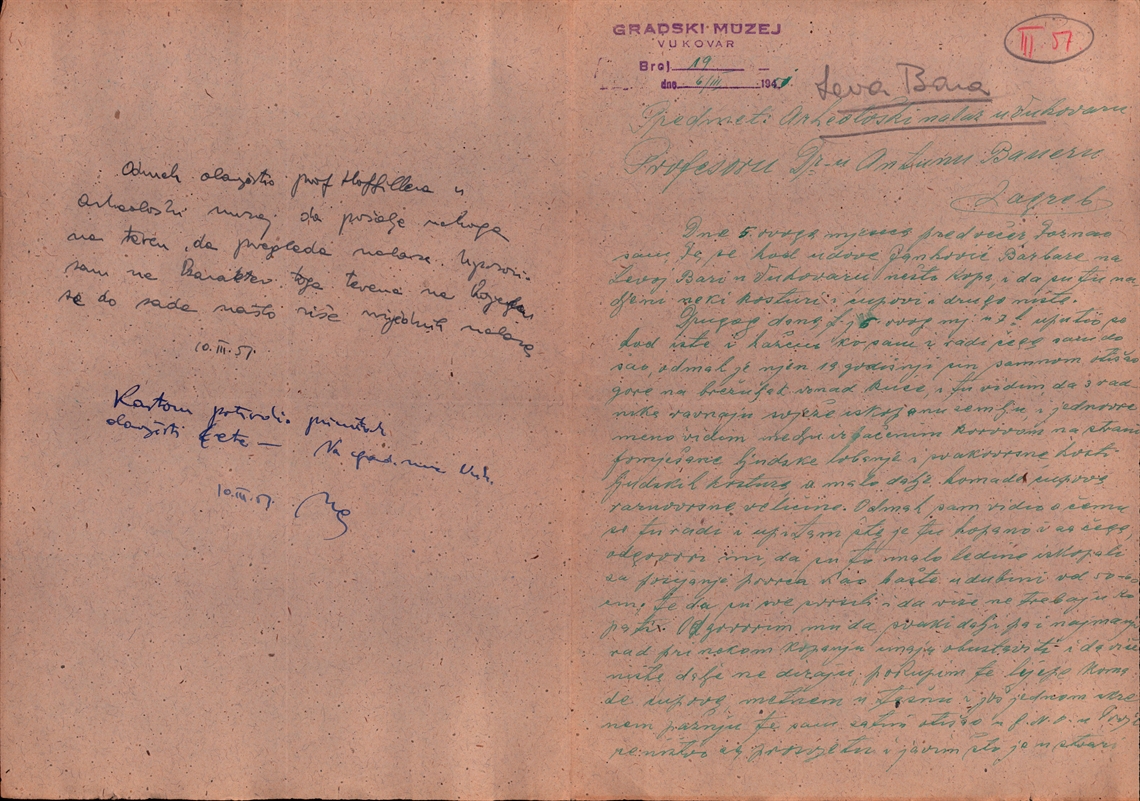 Odmah obavjestio prof Hoffillera u
arheološki muzej da pošalje nekoga
na teren, da pregleda nalaze. Upozorio
sam na karakter toga terena na kojem
se do sada našlo više vrijednih nalaza
10.III.51.
Kartom potvrdio primitak
obavijesti
10.III.51.
GRADSKI MUZEJ
VUKOVAR
Broj 19
dne 6/III 1951
III. 51
Leva Bara
Predmet: Arheološki nalaz u Vukovaru
Profesoru Dr-u Antunu Baueru
Zagreb
Dne 5. ovoga mjeseca pred večer saznao
sam da se kod udove Janković Barbare na
Levoj Bari u Vukovaru nešto kopa i da su tu na
djeni neki kosturi, ćupovi i drugo ništa.
Drugog dana t.j. 6 ovog mj. u 7 h. uputio se
kod iste i kažem ko sam i radi čega sam do
šao, odmah je njen 19 godišnji sin samnom otišao
gore na brežuljak iznad kuće, i tu vidim da 3 rad
nika ravnaju svježe iskopanu zemlju i jednovre
meno vidim među izbačenim korovom na strani
pomješane ljudske lobanje i svakovrsne kosti
ljudskih kostura, a malo dalje komade ćupova
raznovrsne veličine. Odmah sam vidio o čemu
se tu radi i upitam šta je tu kopano i za čega,
odgovori mi, da su tu malo ledine iskopali
za posijanje povrća kao bašte u dubini od 50
cm. te da su sve svršili i da više ne trebaju ko
pati. Odgovorim mu da svaki dalji pa i najmanji
rad pri nokom kopanju imaju obustaviti i da više
ništa dalje ne diraju, pokupim te lijepe koma
de ćupova, metnem u tašnu i još jednom skre
nem pažnju te sam zatim otišao u G.N.O. u Povje
reništvo za prosvjetu i javim što je u stvari